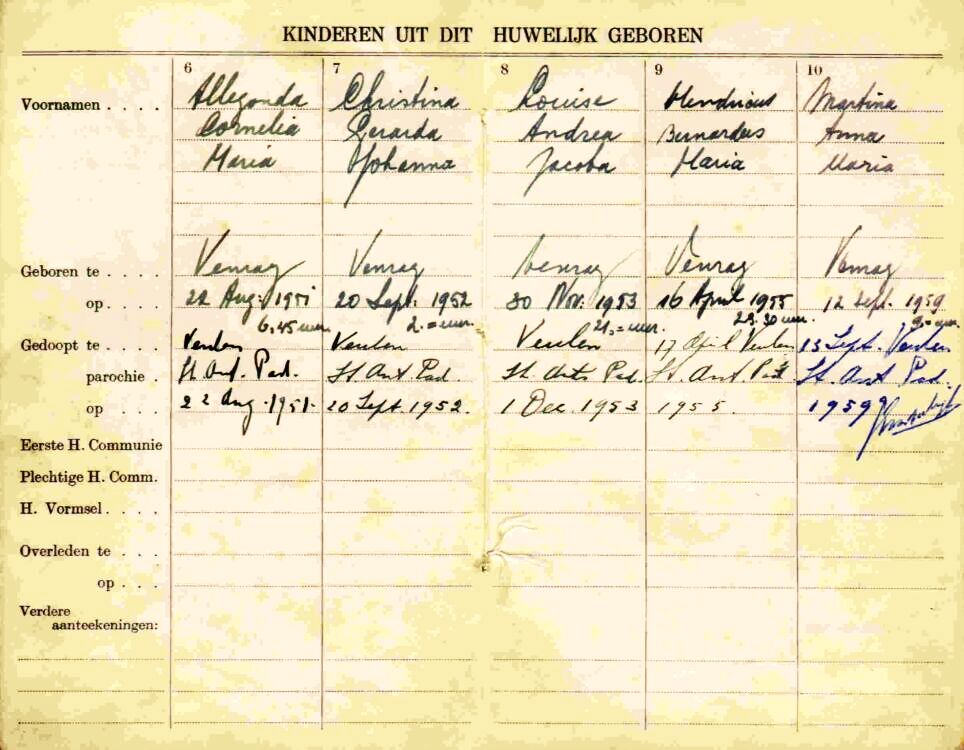 KINDEREN UIT DIT HUWELIJK GEBOREN
6 7 8 9 10
Voornamen . . . . Allegonda Christina Louise Hendricus Martina
Cornelia Gerarda Andrea Bernardus Anna
Maria Johanna Jacoba Maria Maria
Geboren te . . . . Venray Venray Venray Venray Venray
op . . . . 22 Aug. 1951 20 Sept. 1952 30 Nov. 1953 16 April 1955 12 Sept. 1959
6.45 uur. 2.= uur. 21.= uur. 23.30 uur. uur.
Gedoopt te . . . . Veulen Veulen Veulen 17 April Veulen 13 Sept. Veulen
parochie . St. Ant. Pad. St. Ant Pad. St. Ants Pad. St. Ant Pad St. Ant Pad.
op . . . 22 Aug. 1951. 20 Sept. 1952. 1 Dec. 1953 1955. 1959
Eerste H. Communie
Plechtige H. Comm.
H. Vormsel. . . .
Overleden te . . .
op . . .
Verdere
aanteekeningen: